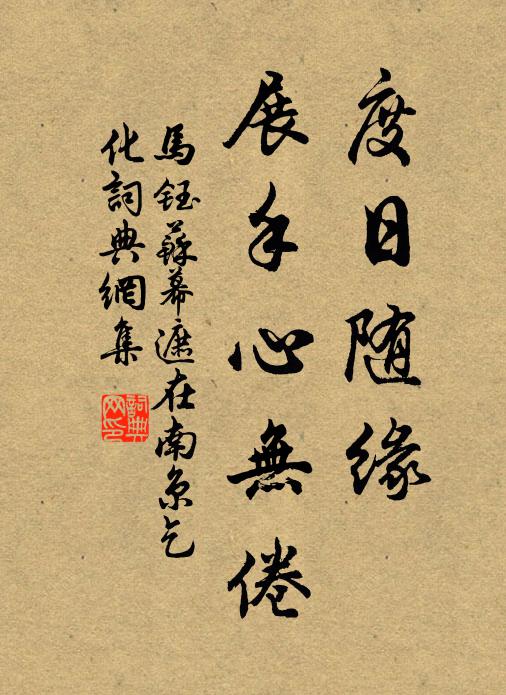 度日随緣
展手心無倦
馬鈺蘇幕遮在南京乞
化詞典網集
詞典
网印